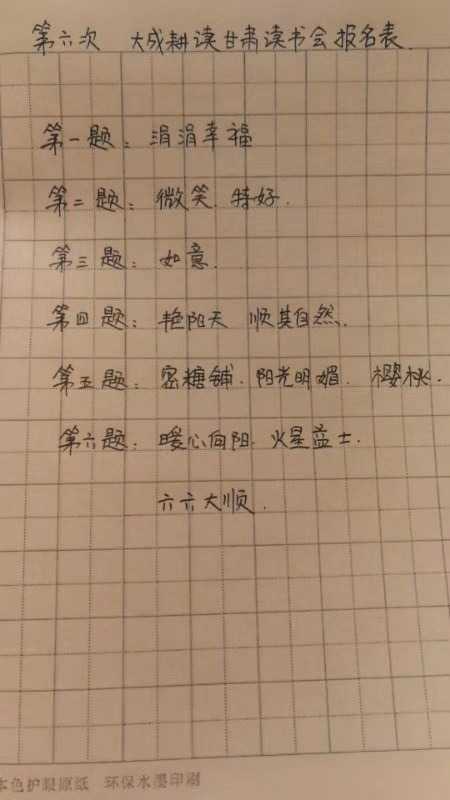 第六次 大成耕读甘肃读书会报名表.
第一题: 涓涓幸福
第二题: 微笑、特好.
第三题: 如意.
第四题: 艳阳天 顺其自然.
第五题: 密糖铺. 阳光明媚. 樱桃.
第六题: 暖心向阳. 火星益士.
六六大顺.
本色护眼原纸 环保水墨印刷